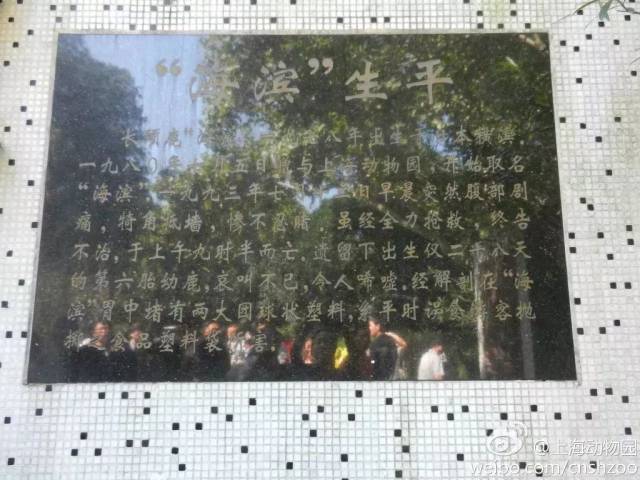 “海滨”生平
长颈鹿“海 年出生于日本横滨，
一九八 年 五日 与上海动物园，开始取名
“海滨”。一九九三年七 日早晨突然腹部剧
痛，犄角抵墙，惨不忍睹，虽经全力抢救，终告
不治，于上午九时半而亡。遗留下出生仅二十八天
的第六胎幼鹿，哀叫不已，令人唏嘘。经解剖在“海
滨”胃中堵有两大团球状塑料，系平时误食游客抛
掷之食品塑料袋 害。
@上海动物园
weibo.com/cnshzoo